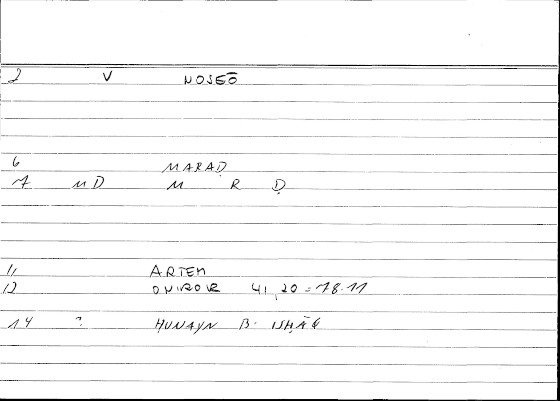 2 V NOSEŌ
6 MARAḌ
7 MD M R Ḍ
11 ARTEM
12 ONIROCR 41,20 = 78.11
14 ? HUNAYN B. ISḤĀQ